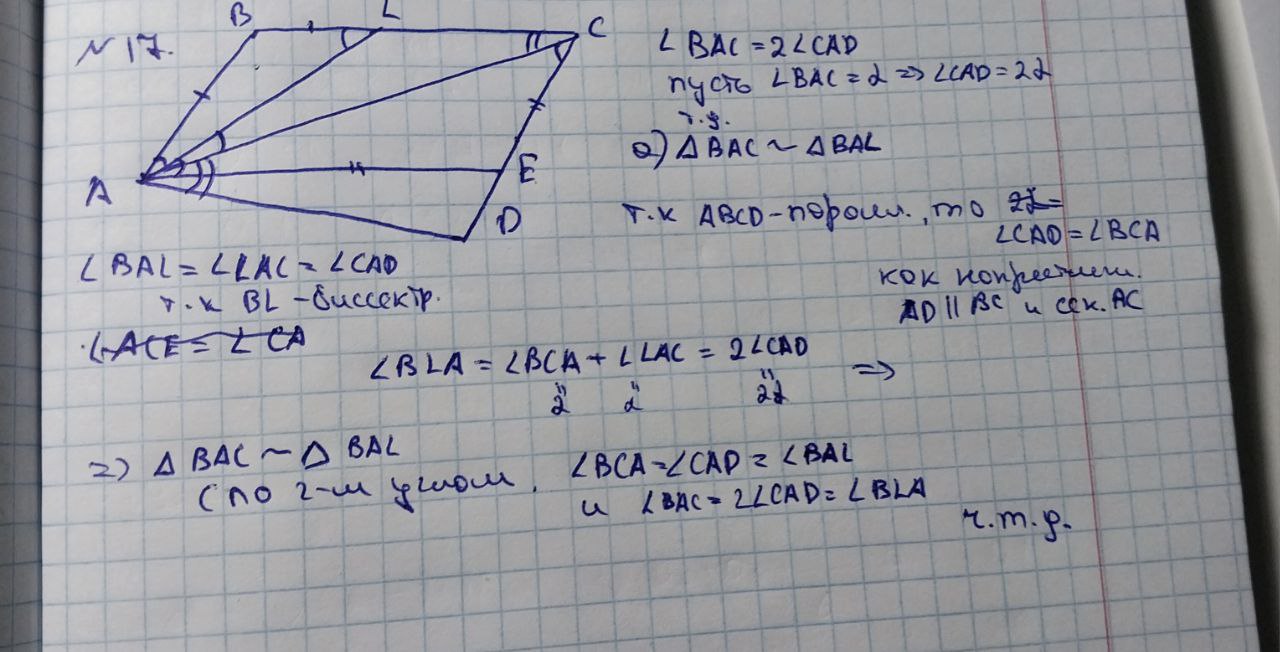 № 17.
B L C
A E D
∠BAC = 2∠CAD
пусть ∠BAC = α => ∠CAD = 2α
т.д.
а) △BAC ~ △BAL
т.к ABCD - парал., то 2α =
∠CAD = ∠BCA
как накрест леж.
AD || BC и сек. AC
∠BAL = ∠LAC = ∠CAD
т.к BL - биссектр.
∠ACE = ∠CA
∠BLA = ∠BCA + ∠LAC = 2∠CAD =>
α α 2α
2) △BAC ~ △BAL
(по 2-м углам, ∠BCA = ∠CAD = ∠BAL
и ∠BAC = 2∠CAD = ∠BLA
ч.т.д.